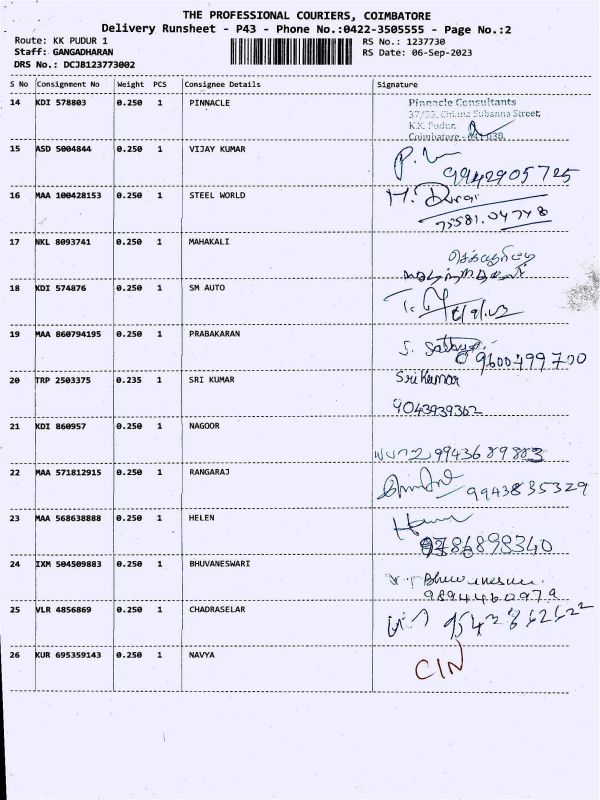 THE PROFESSIONAL COURIERS, COIMBATORE
Delivery Runsheet - P43 - Phone No.:0422-3505555 - Page No.:2
Route: KK PUDUR 1 RS No.: 1237730
Staff: GANGADHARAN RS Date: 06-Sep-2023
DRS No.: DCJB123773002
S No Consignment No Weight PCS Consignee Details Signature
14 KDI 578803 0.250 1 PINNACLE Pinnacle Consultants
Subanna Street,
K.K. Pudur,
Coimbatore - 641 038.
15 ASD 5004844 0.250 1 VIJAY KUMAR
9942905725
16 MAA 100428153 0.250 1 STEEL WORLD M. Durai
75581.04748
17 NKL 8093741 0.250 1 MAHAKALI
18 KDI 574876 0.250 1 SM AUTO
19 MAA 860794195 0.250 1 PRABAKARAN S. Sathya
9600499700
20 TRP 2503375 0.235 1 SRI KUMAR Sri Kumar
9043939362
21 KDI 860957 0.250 1 NAGOOR
9943689883
22 MAA 571812915 0.250 1 RANGARAJ
9943835329
23 MAA 568638888 0.250 1 HELEN
9786898340
24 IXM 504509883 0.250 1 BHUVANESWARI
9894460979
25 VLR 4856869 0.250 1 CHADRASELAR
26 KUR 695359143 0.250 1 NAVYA CIN